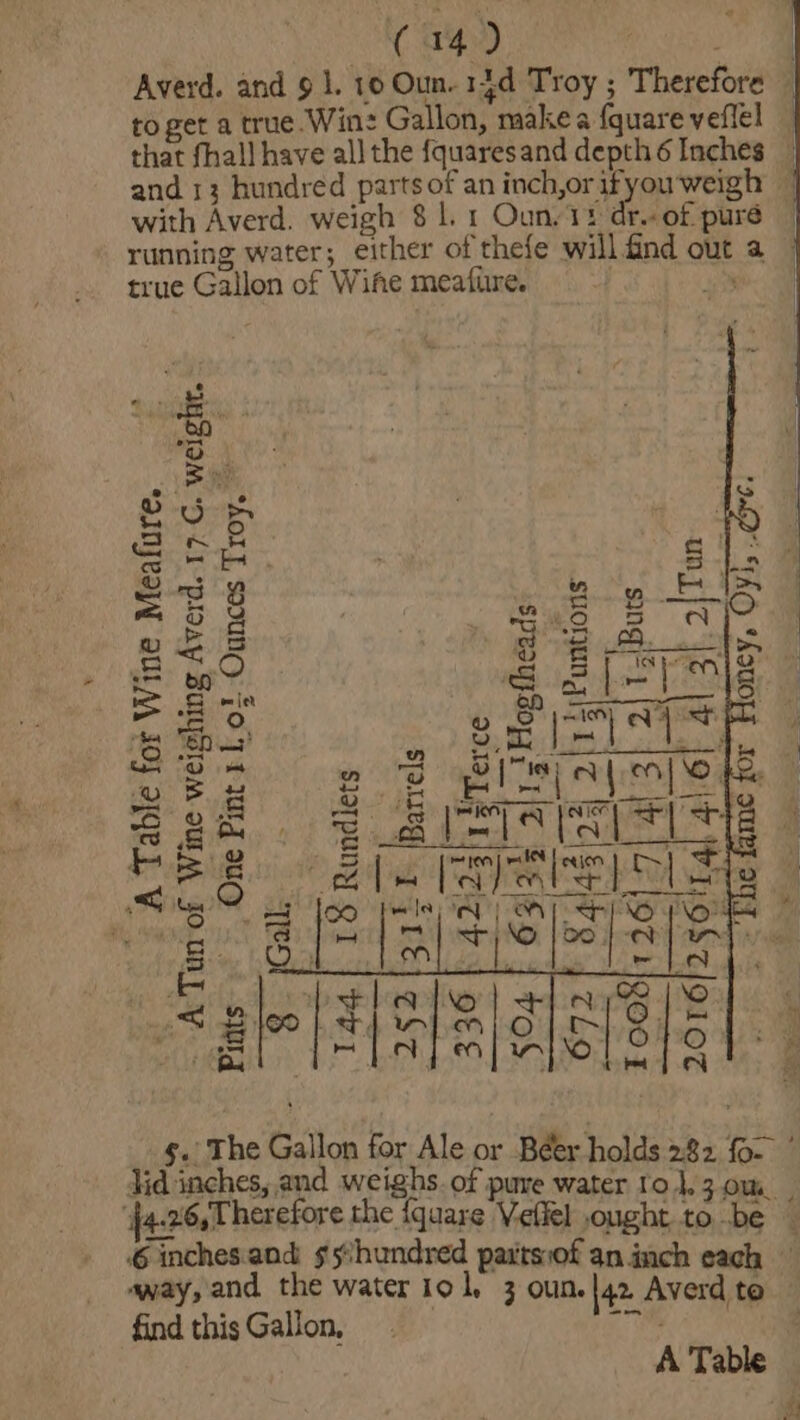 ( 14 )
Averd. and 9 l. 10 Oun. 1½d Troy ; Therefore
to get a true Wine Gallon, make a ſquare veſſel
that ſhall have all the ſquares and depth 6 Inches
and 13 hundred parts of an inch, or if you weigh
with Averd. weigh 8 l. 1 Oun. 11 dr. of puré
running water; either of theſe will find out a
true Gallon of Wiñe meaſure.
A Table for Wine Meaſure.
A Tun of Wine weighing Averd. 17 C. weight.
One Pint 1 l. 0½ Ounces Troy.
Pints
8 | Gall.
144 | 18 Rundlets
252 | 31½ | 1¾ | Barrels
336 | 42 | 2⅓ | 1⅓ | Terce
504 | 63 | 3½ | 2 | 1½ | Hogſheads
672 | 84 | 4⅔ | 2⅔ | 2 | 1⅓ | Puntions
1008 | 126 | 7 | 4 | 3 | 2 | 1½ | Buts
2016 | 256 | 14 | 4 | 6 | 4 | 3 | 2 | Tun
The ſame for Honey, Oyl, &c.
5. The Gallon for Ale or Beer holds 282 ſo-
lid inches, and weighs of pure water 10 l. 3 oun.
|4.26, Therefore the ſquare Veſſel ought to be
6 inches and 55 hundred parts of an inch each
way, and the water 10 l. 3 oun. |42 Averd to
find this Gallon,
A Table